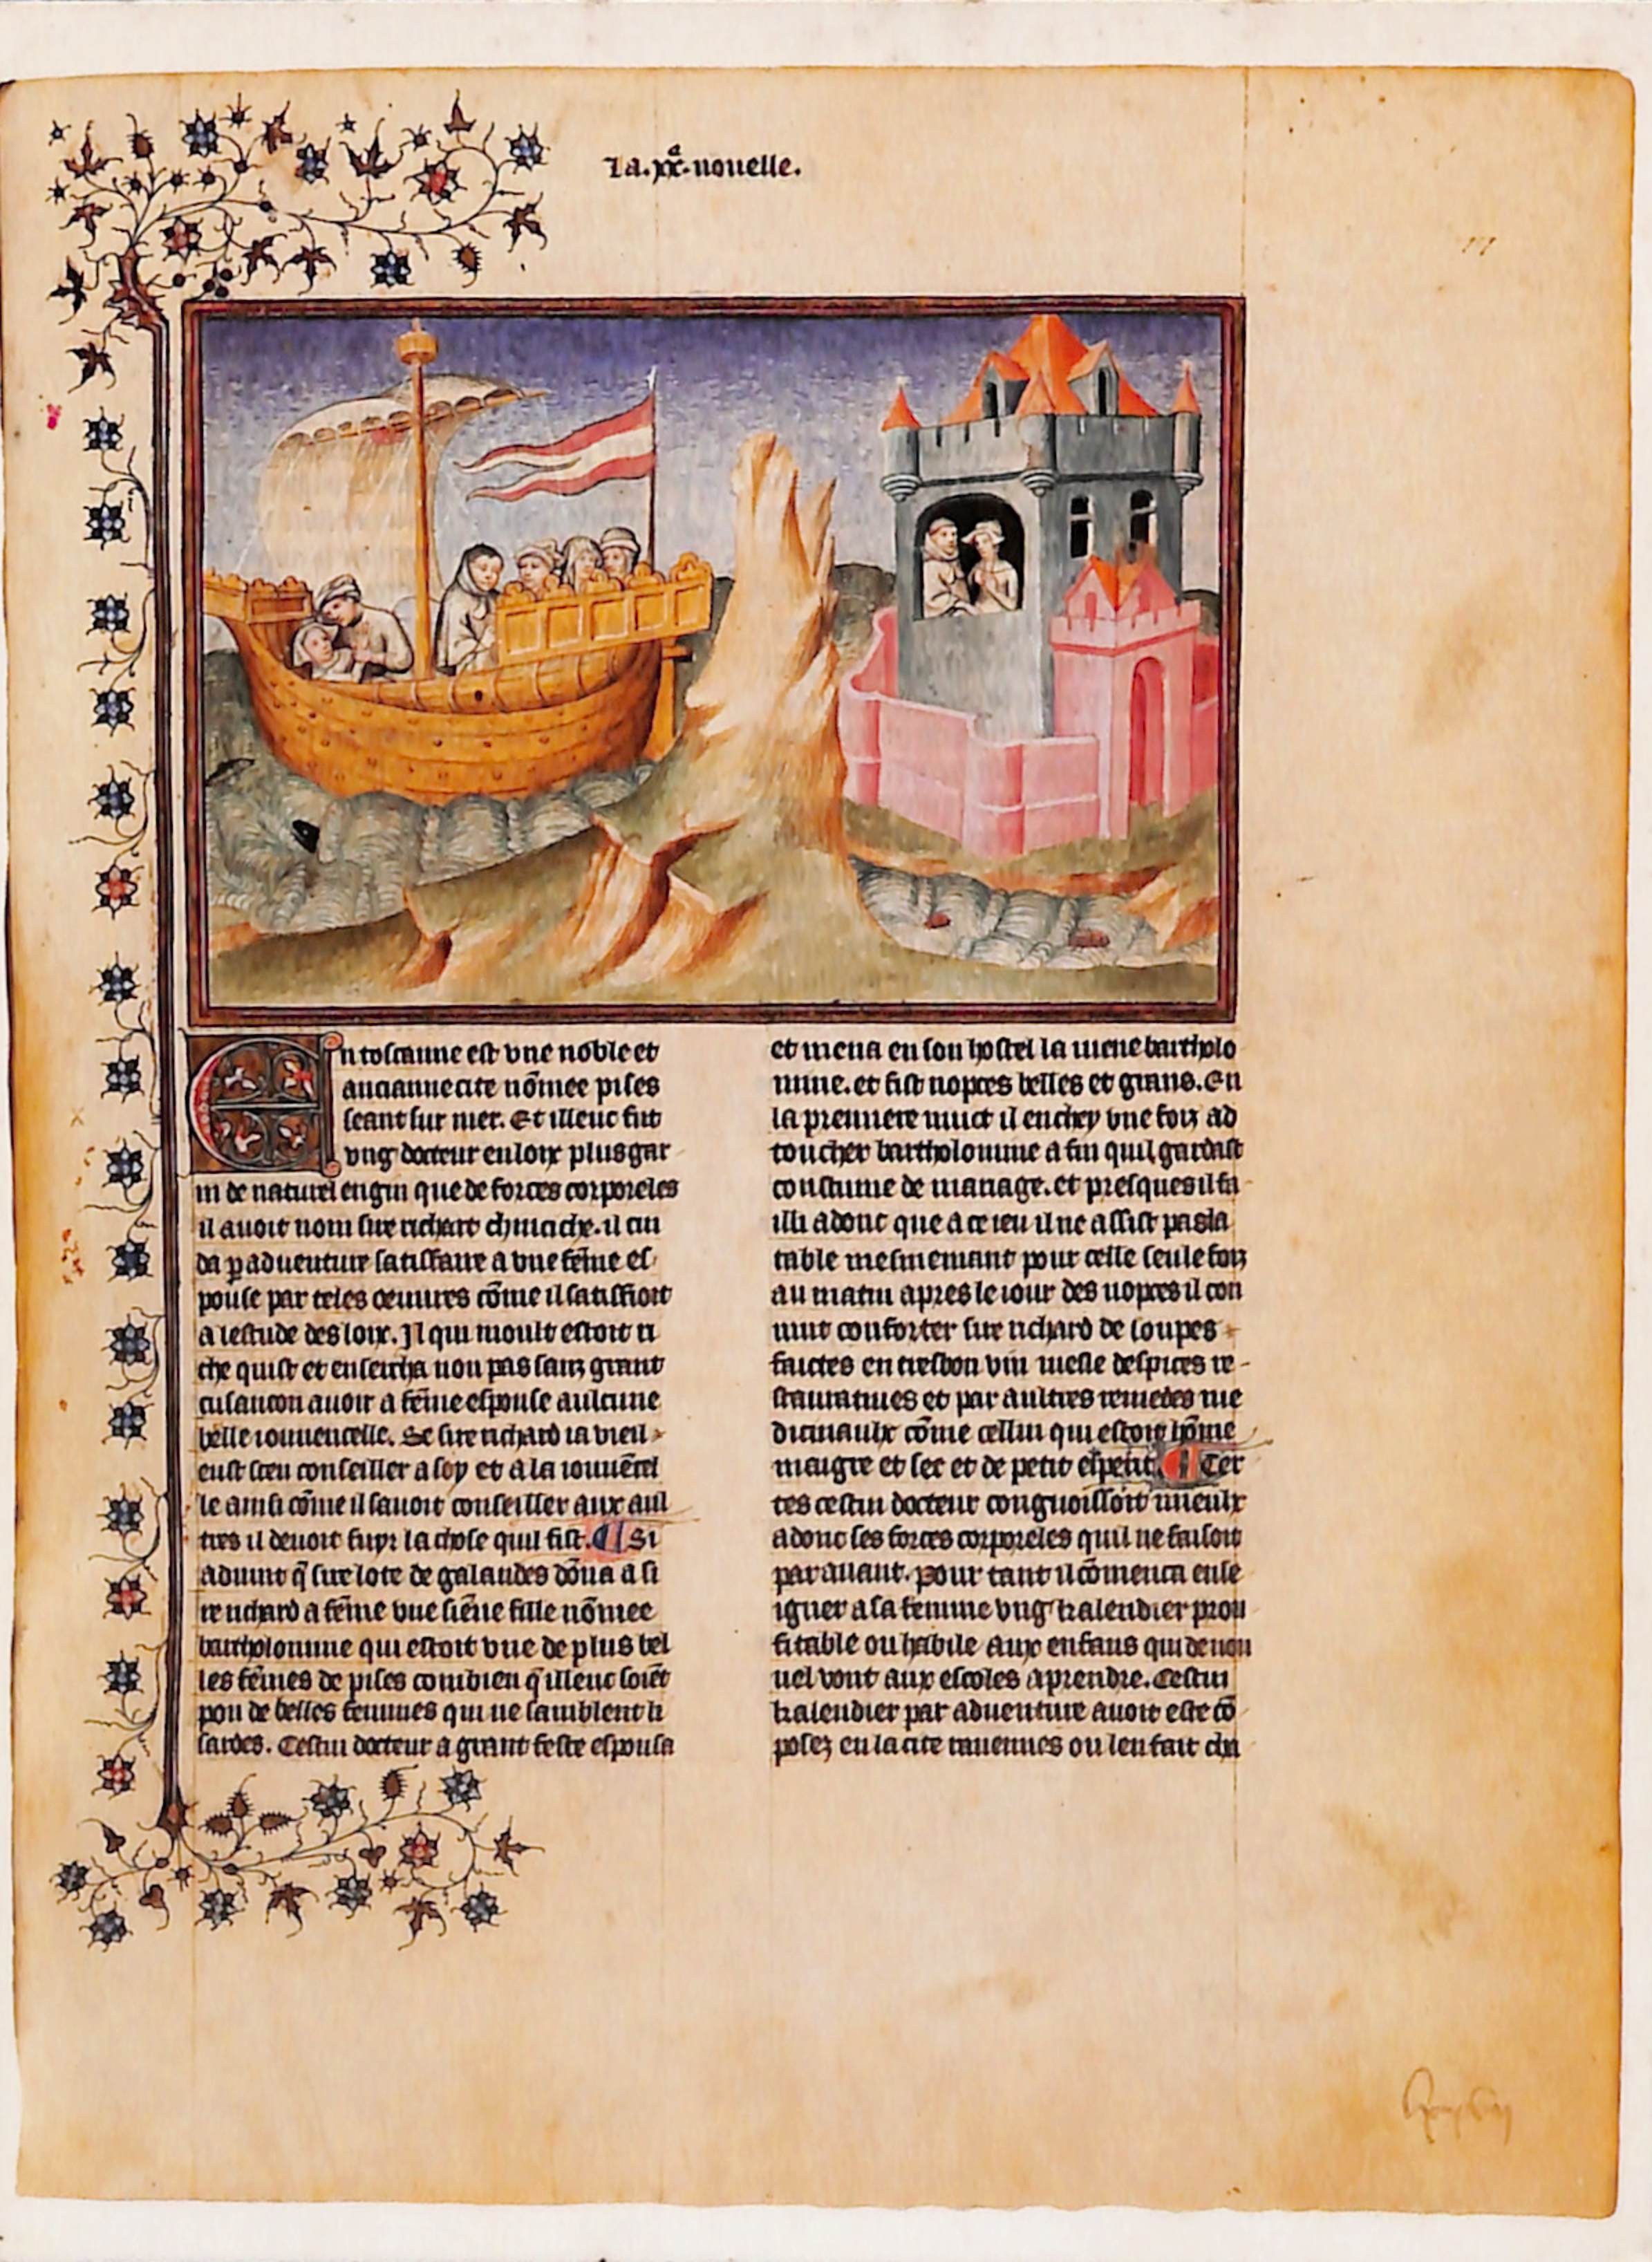 la .xx.a nouelle.
En toscanne est vne noble et
anciannecite nõmee pises
seant sur mer. Et illeuc fut
vng docteur en loix plus gar
ni de naturel engin que de forces corporeles
il auoit nom sire richart chinciche. il cui
da p aduenture satisfaire a vne fẽme es
pouse par teles oeuures cõme il satisfioit
a lestude des loix. Il qui moult estoit ri
che quist et encercha non pas sanz grant
cusancon auoir a fẽme espouse aulcune
belle iouuencelle. Se sire richard ia vieil
eust sceu conseiller a soy et a la iouuẽcel
le ainsi cõme il sauoit conseiller aux aul
tres il deuoit fuyr la chose quil fist. ¶ Si
aduint q̃ sire lote de galandes dõna a si
re richard a fẽme vne siẽne fille nõmee
bartholomine qui estoit vne de plus bel
les fẽmes de pises combien q̃ illeuc soiẽt
pou de belles femmes qui ne samblent li
sardes. Cestui docteur a grant feste espousa
et mena en son hostel la niene bartholo
mine. et fist nopces belles et grans. En
la premiere nuict il enchey vne foiz ad
toucher bartholomine a fin quil gardast
coustume de mariage. et presques il fa
illi adonc que a ce ieu il ne assist pas la
table mesmemant pour celle seule foiz
au matin apres le iour des nopces il con
uint conforter sire richard de soupes
faictes en tresbon vin mesle despices re-
stauratiues et par aultres remedes me
dicinaulx cõme cellui qui estoit hõme
maigre et sec et de petit esperit. ¶ Cer
tes cestui docteur congnoissoit mieulx
adonc ses forces corporeles quil ne faisoit
par auant. pour tant il cõmenca ense
igner a sa femme vng kalendier prou
fitable ou habile aux enfans qui de nou
uel vont aux escoles aprendre. Cestui
kalendier par aduenture auoit este cõ
posez en la cite rauennes ou len fait cha